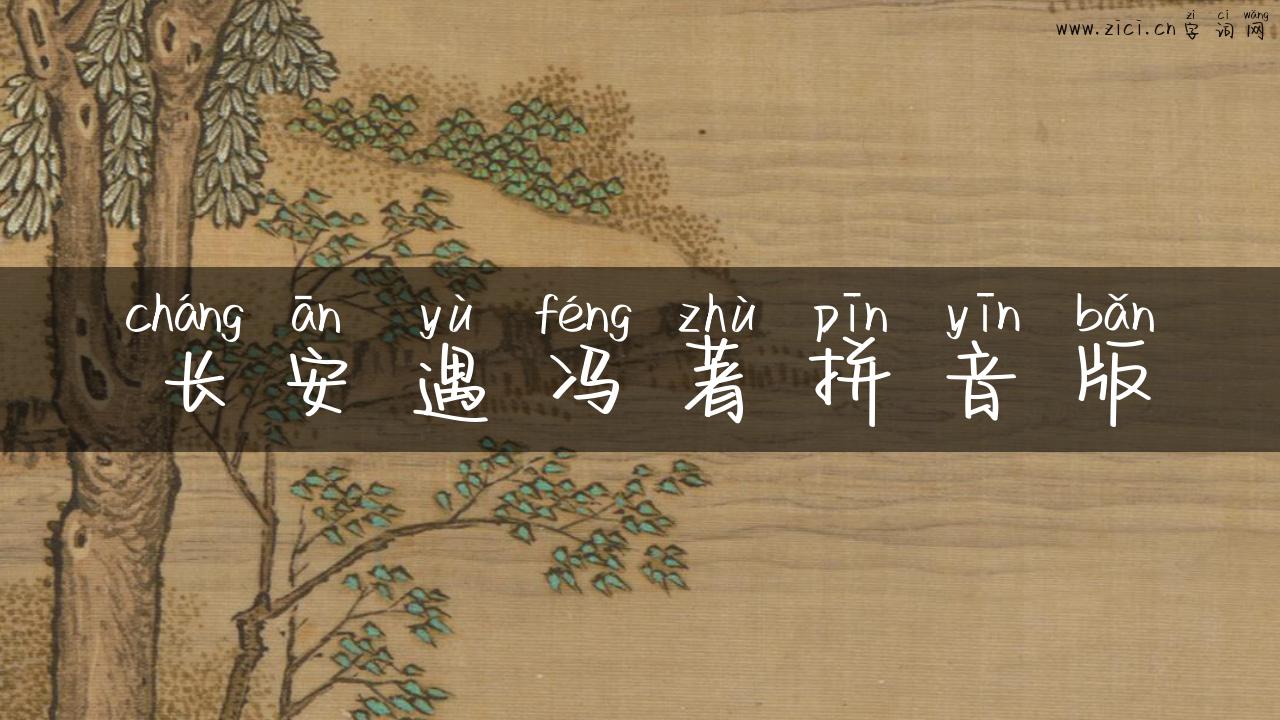 zì cí wǎng
www.zici.cn 字 词 网
cháng ān yù féng zhù pīn yīn bǎn
长 安 遇 冯 著 拼 音 版